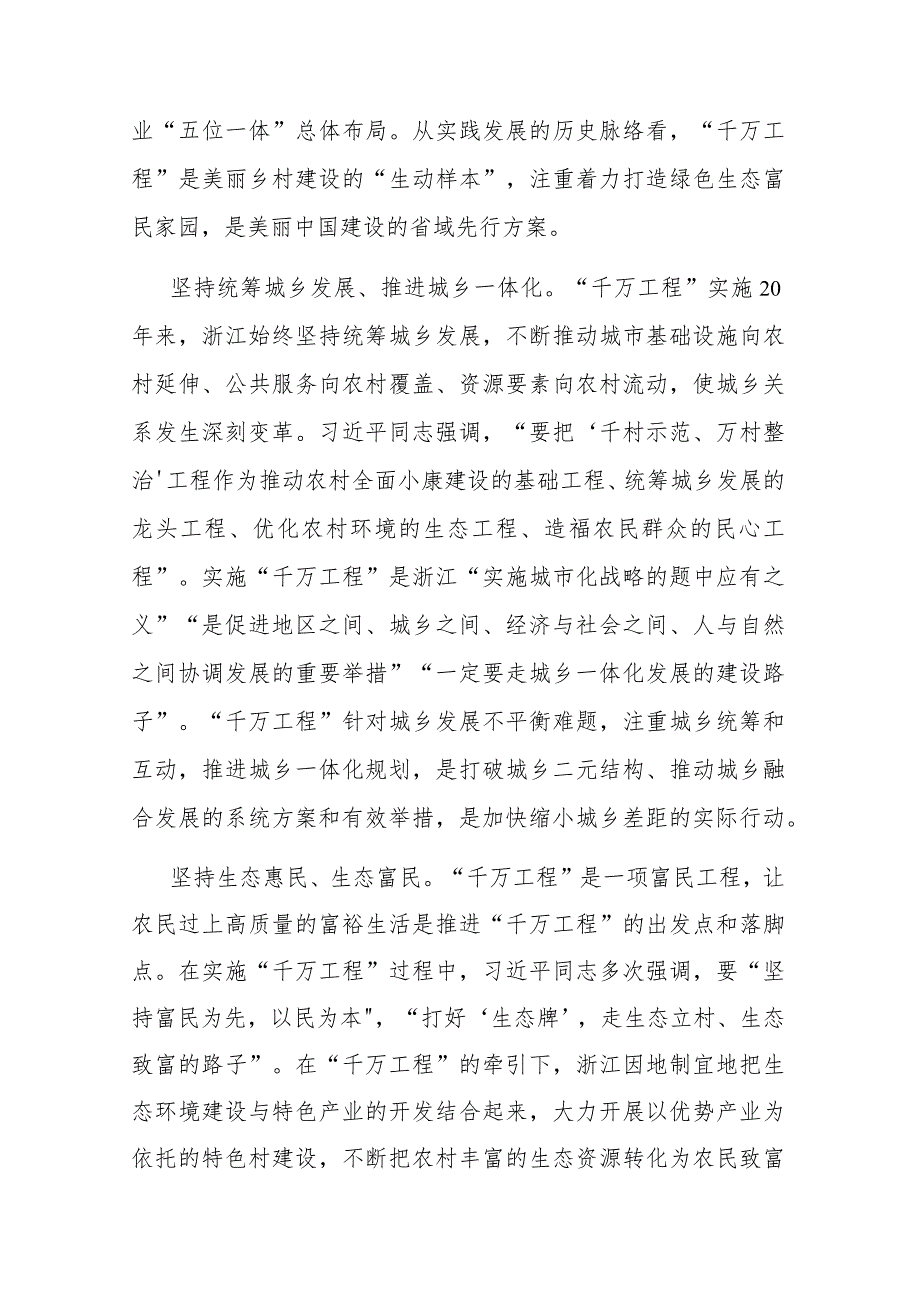 业“五位一体”总体布局。从实践发展的历史脉络看，“千万工
程”是美丽乡村建设的“生动样本”，注重着力打造绿色生态富
民家园，是美丽中国建设的省域先行方案。
坚持统筹城乡发展、推进城乡一体化。“千万工程”实施20
年来，浙江始终坚持统筹城乡发展，不断推动城市基础设施向农
村延伸、公共服务向农村覆盖、资源要素向农村流动，使城乡关
系发生深刻变革。习近平同志强调，“要把‘千村示范、万村整
治'工程作为推动农村全面小康建设的基础工程、统筹城乡发展的
龙头工程、优化农村环境的生态工程、造福农民群众的民心工
程”。实施“千万工程”是浙江“实施城市化战略的题中应有之
义”“是促进地区之间、城乡之间、经济与社会之间、人与自然
之间协调发展的重要举措”“一定要走城乡一体化发展的建设路
子”。“千万工程”针对城乡发展不平衡难题，注重城乡统筹和
互动，推进城乡一体化规划，是打破城乡二元结构、推动城乡融
合发展的系统方案和有效举措，是加快缩小城乡差距的实际行动。
坚持生态惠民、生态富民。“千万工程”是一项富民工程，让
农民过上高质量的富裕生活是推进“千万工程”的出发点和落脚
点。在实施“千万工程”过程中，习近平同志多次强调，要“坚
持富民为先，以民为本"，“打好‘生态牌’，走生态立村、生态
致富的路子”。在“千万工程”的牵引下，浙江因地制宜地把生
态环境建设与特色产业的开发结合起来，大力开展以优势产业为
依托的特色村建设，不断把农村丰富的生态资源转化为农民致富